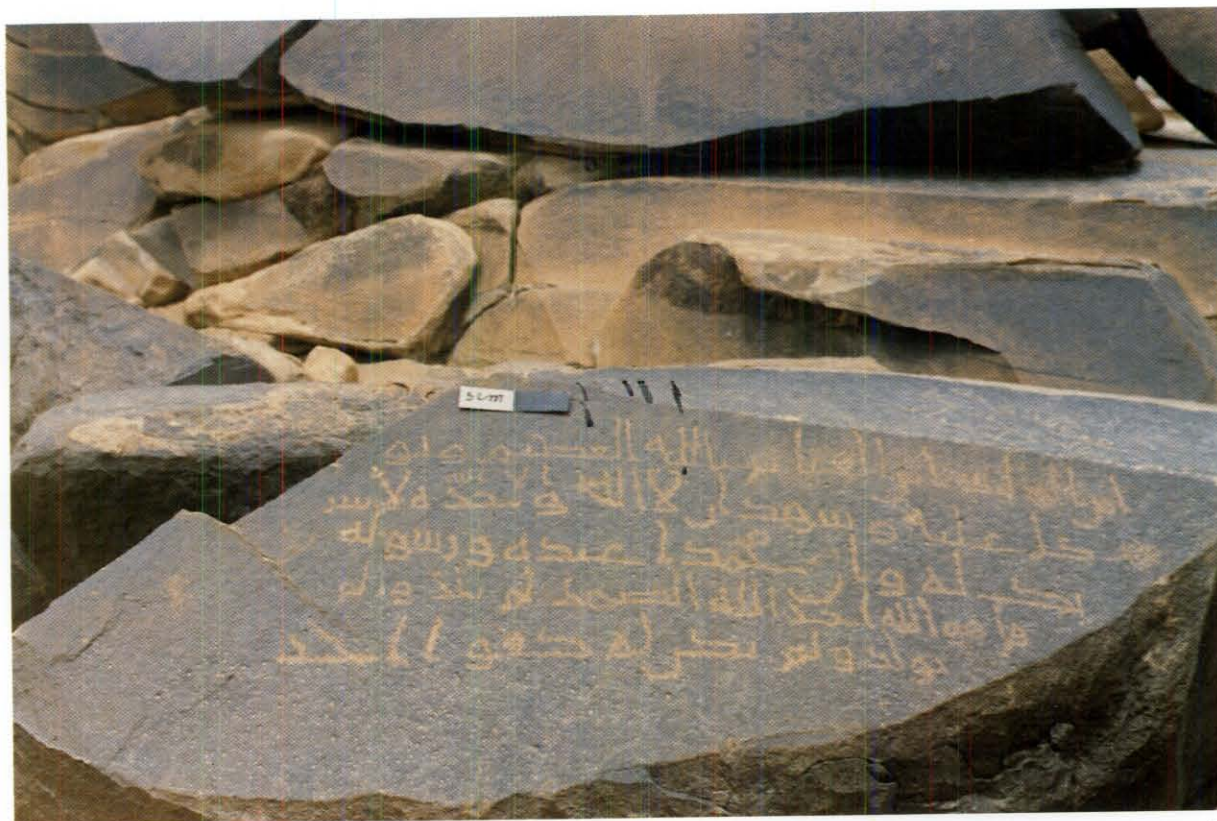 5 cm
امن بالله العظيم و
كل عليه و يشهد ان لا اله الا الله وحده لا شر
يك له و ان محمدا عبده و رسوله
الله احد الله الصمد لم يلد ولم
يولد ولم يكن له كفو ا احد